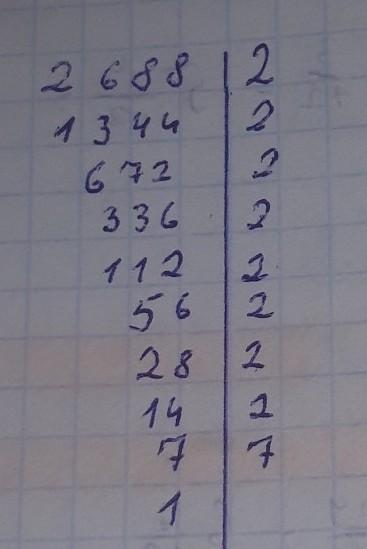 2688 | 2
1344 | 2
672 | 2
336 | 2
112 | 2
56 | 2
28 | 2
14 | 2
7 | 7
1 |